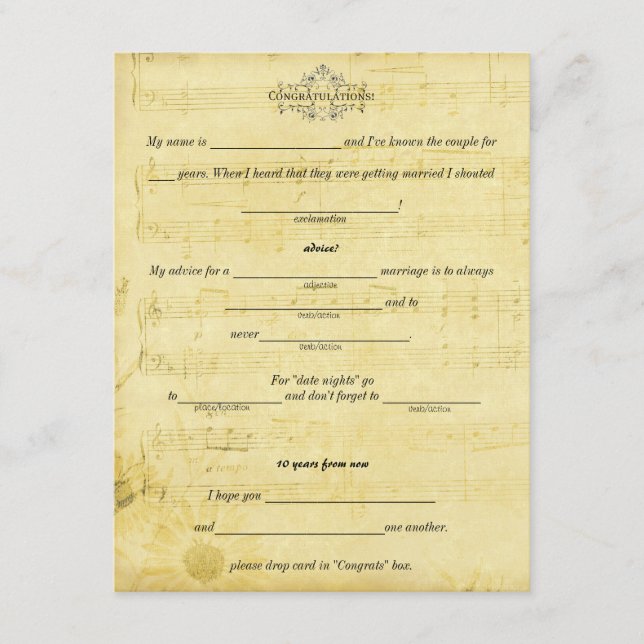 CONGRATULATIONS!
My name is ____________________ and I've known the couple for
____ years. When I heard that they were getting married I shouted
________________________!
exclamation
advice?
My advice for a ______________________ marriage is to always
adjective
______________________ and to
verb/action
never_______________________.
verb/action
For "date nights" go
to________________ and don't forget to _______________
place/location verb/action
a tempo
10 years from now
I hope you __________________________
and__________________________one another.
please drop card in "Congrats" box.